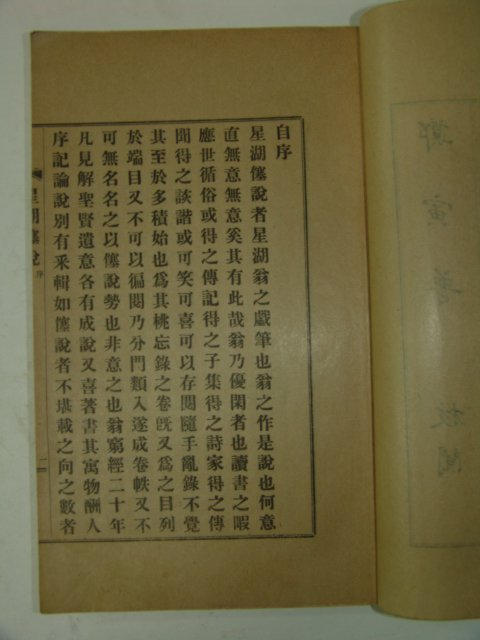 鄭寅普 校閱
自序
星湖僿說者星湖翁之戱筆也翁之作是說也何意
直無意無意奚其有此哉翁乃優閑者也讀書之暇
應世循俗或得之傳記得之子集得之詩家得之傳
聞得之詼諧或可笑可喜可以存閱隨手亂錄不覺
其至於多積始也爲其桃忘錄之卷旣又爲之目列
於端目又不可以徧閱乃分門類入遂成卷帙又不
可無名名之以僿說勢也非意之也翁窮經二十年
凡見解聖賢遺意各有成說又喜著書其寓物酬人
序記論說別有釆輯如僿說者不堪載之向之數者
星湖僿說 序